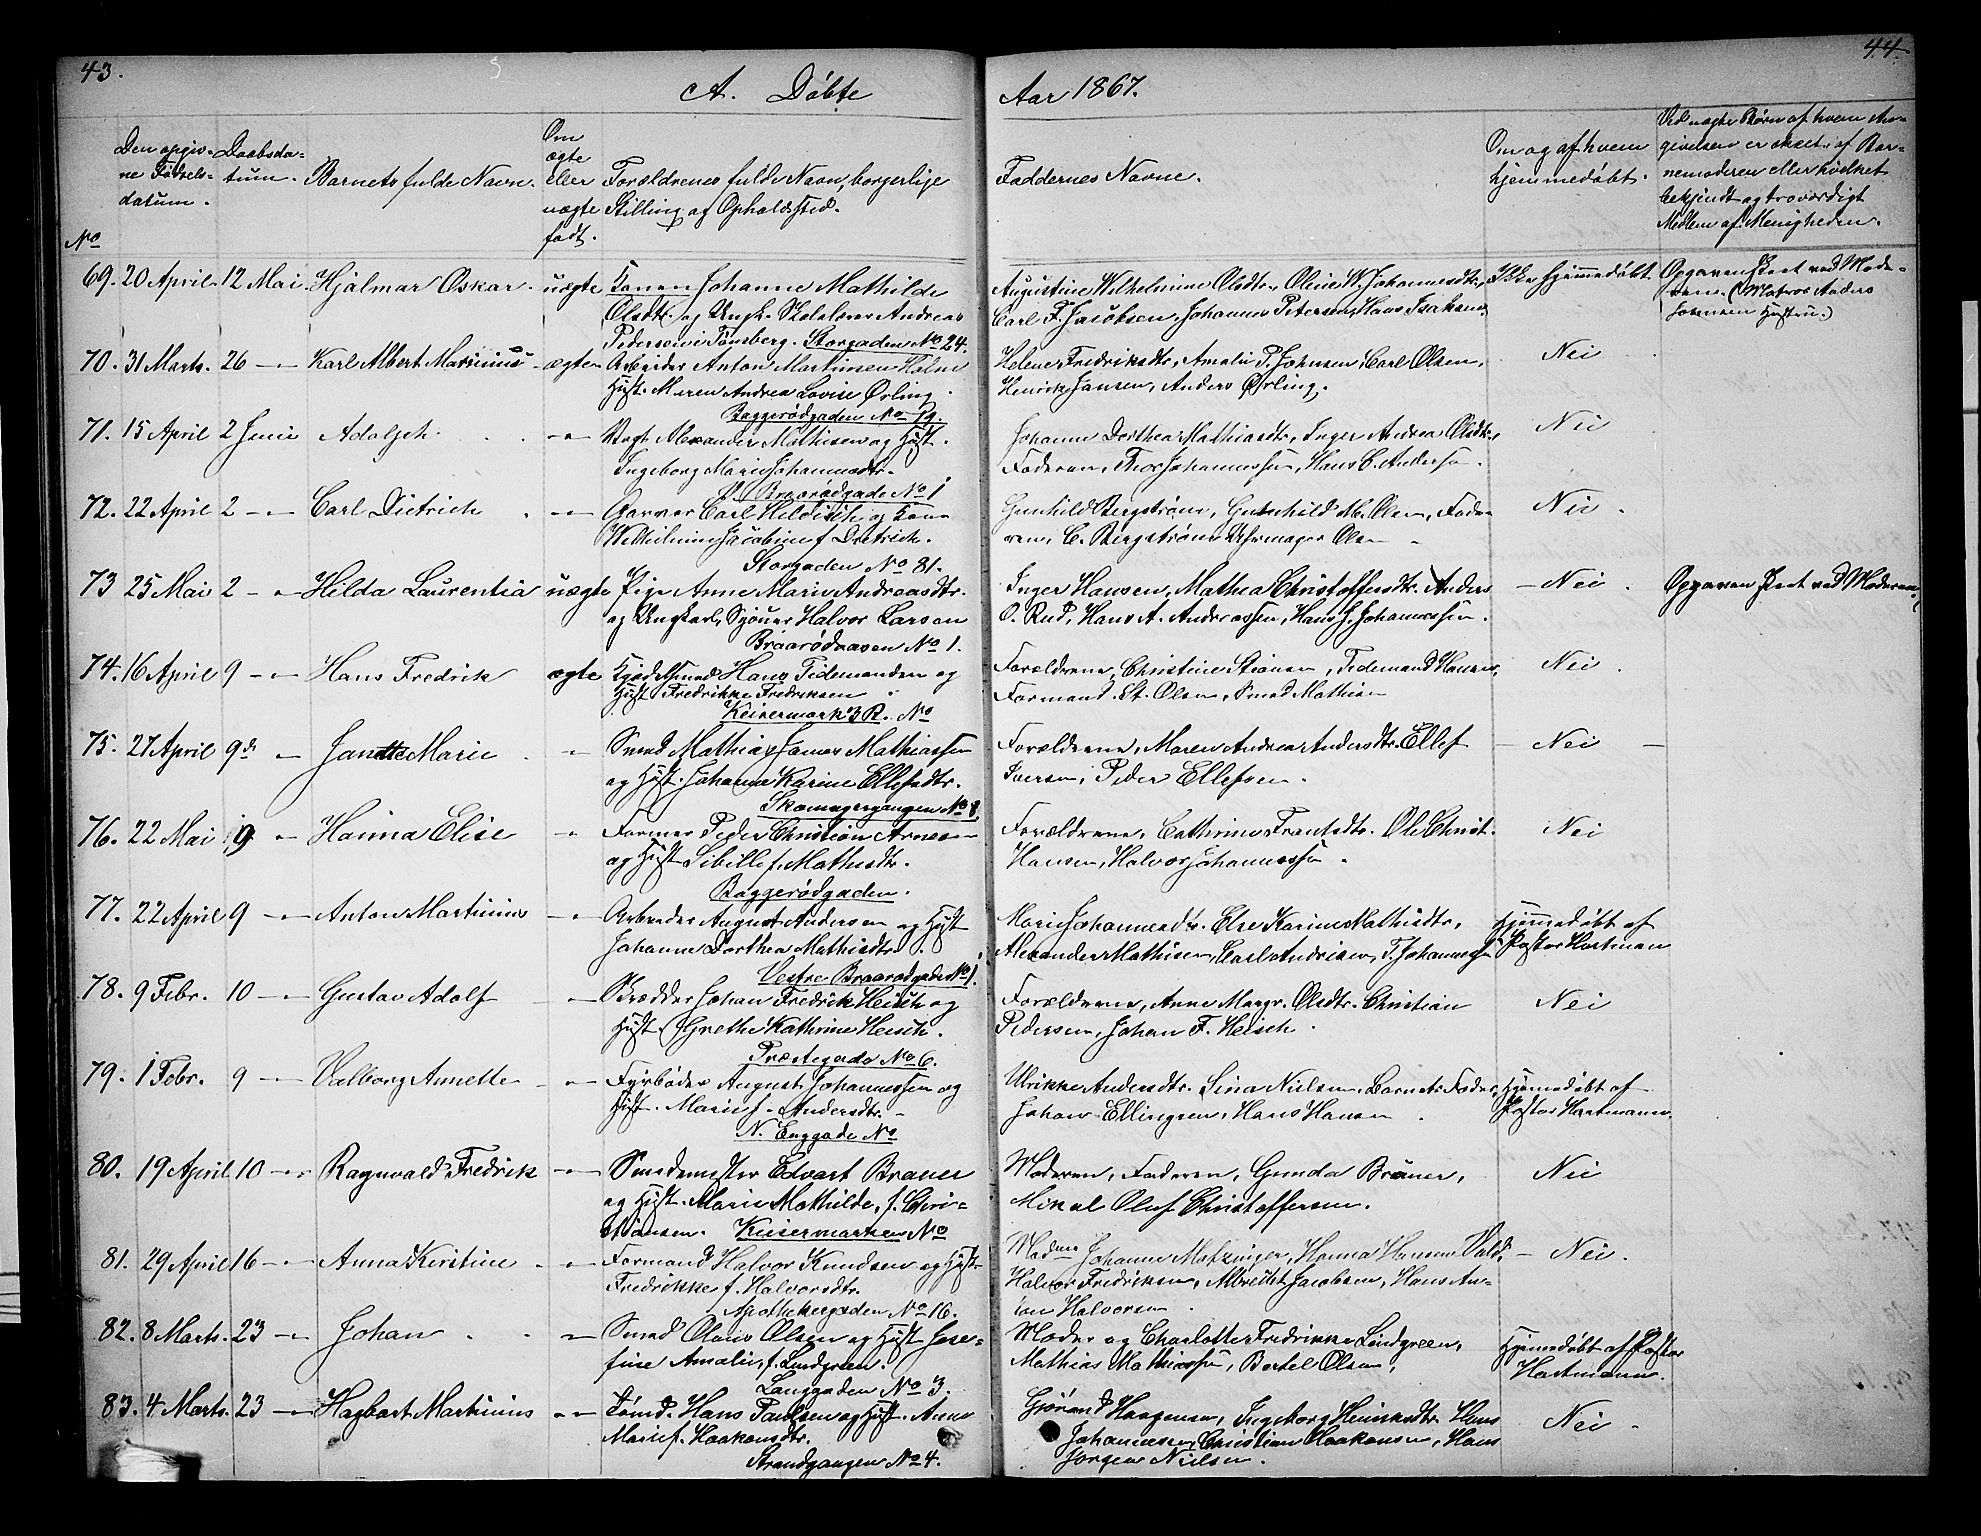 43.
A. Döbte
Aar 1867.
44.
No
Den opgiv-
ne Födsels-
datum.
Daabsda-
tum.
Barnets fulde Navn.
Om
ægte
eller
uægte
født.
Forældrenes fulde Navn, borgerlige
Stilling og Opholdssted.
Faddernes Navne.
Om og af hvem
hjemmedøbt.
Ved uægte Børn af hvem An-
givelsen er skeet, af Bar-
nemoderen eller hvilket
bekjendt og troværdigt
Medlem af Menigheden.
69. 20 April. 12 Mai Hjalmar Oskar uægte Konen Johanne Mathilde
Olsdtr. og Ungk. Skolelærer Andreas
Pedersen i Tönsberg. Storgaden No 24.
Augustine Wilhelmine Olsdtr., Oline W. Johannesdtr.,
Carl F. Jacobsen, Johannes Petersen, Hans Isaksen
Ikke hjemmedöbt.
Opgaven skeet ved Mode-
ren. (Matros Anders
Johnsen Hustru.)
70. 31 Marts. 26 -"- Karl Albert Martinius ægte Arbeider Anton Martinsen Holm
Hust. Maren Andrea Lovise Örling.
Baggerödgaden No 19.
Helene Fredriksdtr., Amalie P. Johnsen, Carl Olsen,
Henrik Jansen, Anders Örling.
Nei
71. 15 April 2 Juni Adolph -"- Vogt. Alexander Mathisen og Hust.
Ingeborg Marie Johannesdtr.
V. Braarödgade No 1
Johanne Dorthea Mathiasdtr., Inger Andrea Olsdtr.,
Faderen, Thor Johannessen, Hans C. Andersen.
Nei
72. 22 April 2 -"- Carl Dietrich -"- Garver Carl Hildisch og Kone
Wilhelmine Jacobine f. Dietrich.
Storgaden No 81.
Gunhild Bergström, Gunhild M. Olsen, Fade-
ren, C. Bergström, Uhrmager Olsen
Nei.
73 25 Mai 2 -"- Hilda Laurentia uægte Pige Anne Marie Andreasdtr.
og Ungkarl, Sjömær Halvor Larsen
Braarödaasen No 1.
Inger Hansen, Mathea Christoffersdtr. Anders
O. Rud, Hans A. Andersen, Hans J. Johannessen.
- Nei.
Opgaven skeet ved Moderen.
74. 16 April 9 -"- Hans Fredrik ægte Hans Tidemandsen og
Hust Fredrikke Fredriksen
Keisermark 3 R. No
Forældrene, Christine Steinsen, Tidemand Hansen,
Formand. St. Olsen, Smed Mathisen
Nei.
75. 27 April 9de -"- Janette Marie -"- Smed Mathias James Mathiassen
og Hust. Johanne Karine Ellefsdtr.
Skomagergangen No 8.
Forældrene, Maren Andrea Andersdtr. Ellef
Iversen, Peder Ellefsen.
- Nei -
76. 22 Mai 9 -"- Hanna Elise -"- Former Peder Christian Arnesen
og Hust Sibille f. Mathisdtr.
Baggerödgaden.
Forældrene, Cathrine Frantsdtr. Ole Christ.
Hansen, Halvor Johannessen.
Nei
77. 22 April 9 -"- Anton Martinius -"- Arbeider August Andersen og Hust
Johanne Dorthea Mathisdtr.
Vestre Braarödgade No 1.
Marie Johannesdtr. Else Karine Mathisdtr.
Alexander Mathisen, Carl Andrisen, T. Johannessen
Hjemmedöbt af
Pastor Hartman
78. 9 Febr. 10 -"- Gustav Adolf -"- Johan Fredrik Heisch og
Hust. Grethe Kathrine Heisch.
Præstegade No 6.
Forældrene, Anne Margr. Olsdtr. Christian
Pedersen, Johan F. Heisch.
Nei
79. 1 Febr. 9 -"- Valborg Annette -"- Fyrböder August Johannessen og
Hust. Marie f. Andersdtr. -
N. Enggade No
Ulrikke Andersdtr. Sina Nielsen, Barnets Fader,
Johan Ellingsen, Hans Hansen.
Hjemedöbt af
Pastor Hartmann.
80. 19 April 10 -"- Ragnvald Fredrik -"- Smedemester Edvart Braner
og Hust. Marie Mathilde, f. Chri-
stiansen. Keisermarken No
Moderen, Faderen, Gunda Braner,
Mikal Oluf Christoffersen.
Nei
81. 29 April 16 -"- Anna Kirstine -"- Formand Halvor Knudsen og Hust
Fredrikke f. Halvorsdtr.
Apothekergaden No 16.
Johanne Matzinger, Hanna Hansen Vold,
Halvor Fredriksen, Albrecht Jacobsen, Hans An-
ton Halvorsen.
- Nei.
82. 8 Marts. 23 -"- Johan -"- Smed Olaus Olsen og Hust Jose-
fine Amalie, f. Lindgreen.
Langgaden No 3.
Moder og Charlotte Fredrikke Lindgreen,
Mathias Mathiassen, Bertel Olsen,
Hjemmedöbt af Pastor
Hartmann.
83. 4 Marts. 23 -"- Hagbart Martinius -"- Tömd. Hans Paulsen og Hust. Anne
Marie f. Haakonsdtr.
Strandgangen No 4.
Gjörand Haagensen, Ingeborg Henriksdtr. Hans
Johannesen, Christian Haakonsen, Hans
Jörgen Nielsen.
Nei -